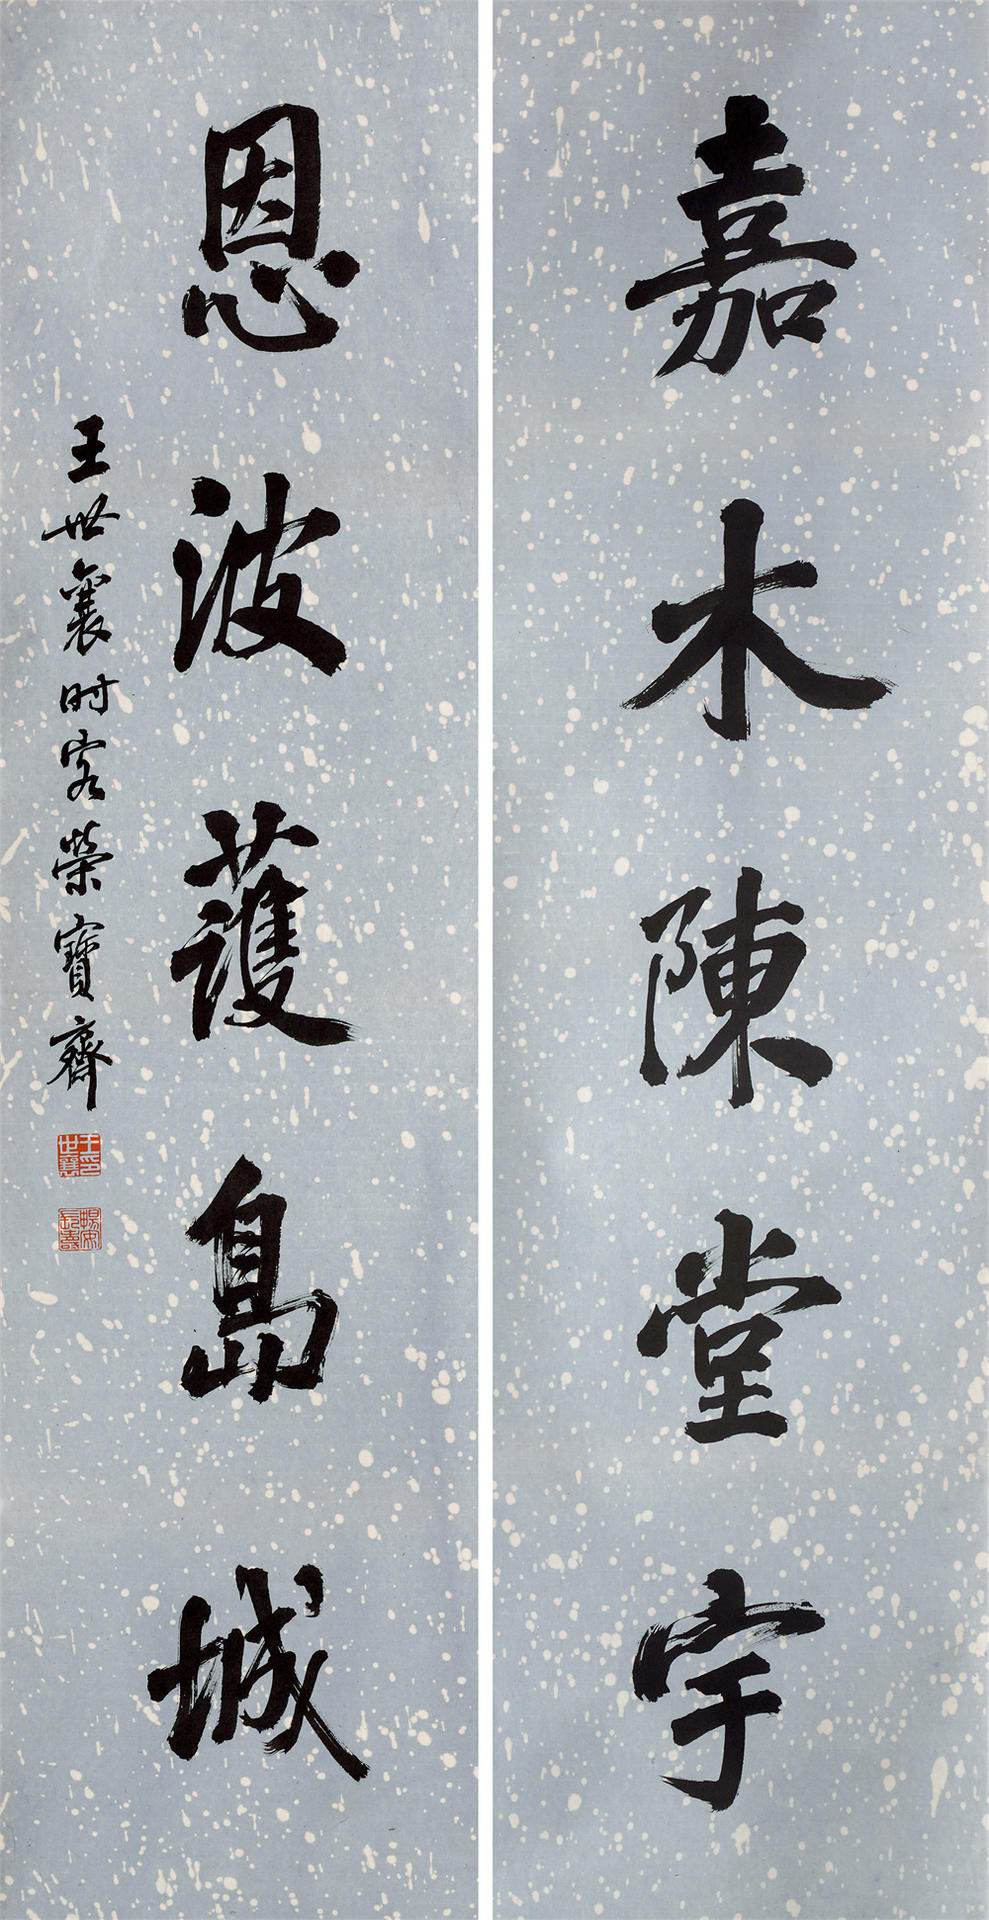 嘉木陳堂宇
恩波護島城
王世襄时客榮寶齋
王印世襄
暢安長壽